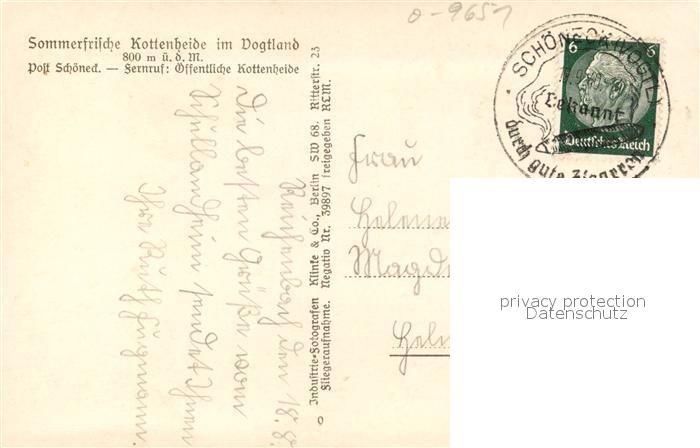 o-9651
Sommerfrische Kottenheide im Vogtland
800 m ü. d. M.
Post Schöneck. — Fernruf: Öffentliche Kottenheide
SCHÖNECK (VOGTL)
6 6
Bekannt
Deutsches Reich
durch gute Zigarren
Reichenbach den 18.8.
Die besten Grüße vom
Schullandheim sendet Ihnen
Ihre Ruth
Industrie-Fotografen Klinke & Co., Berlin SW 68, Ritterstr. 23
Fliegeraufnahme. Negativ Nr. 39897 freigegeben RLM.
0
Frau
Helene
Magde
Helm
privacy protection
Datenschutz